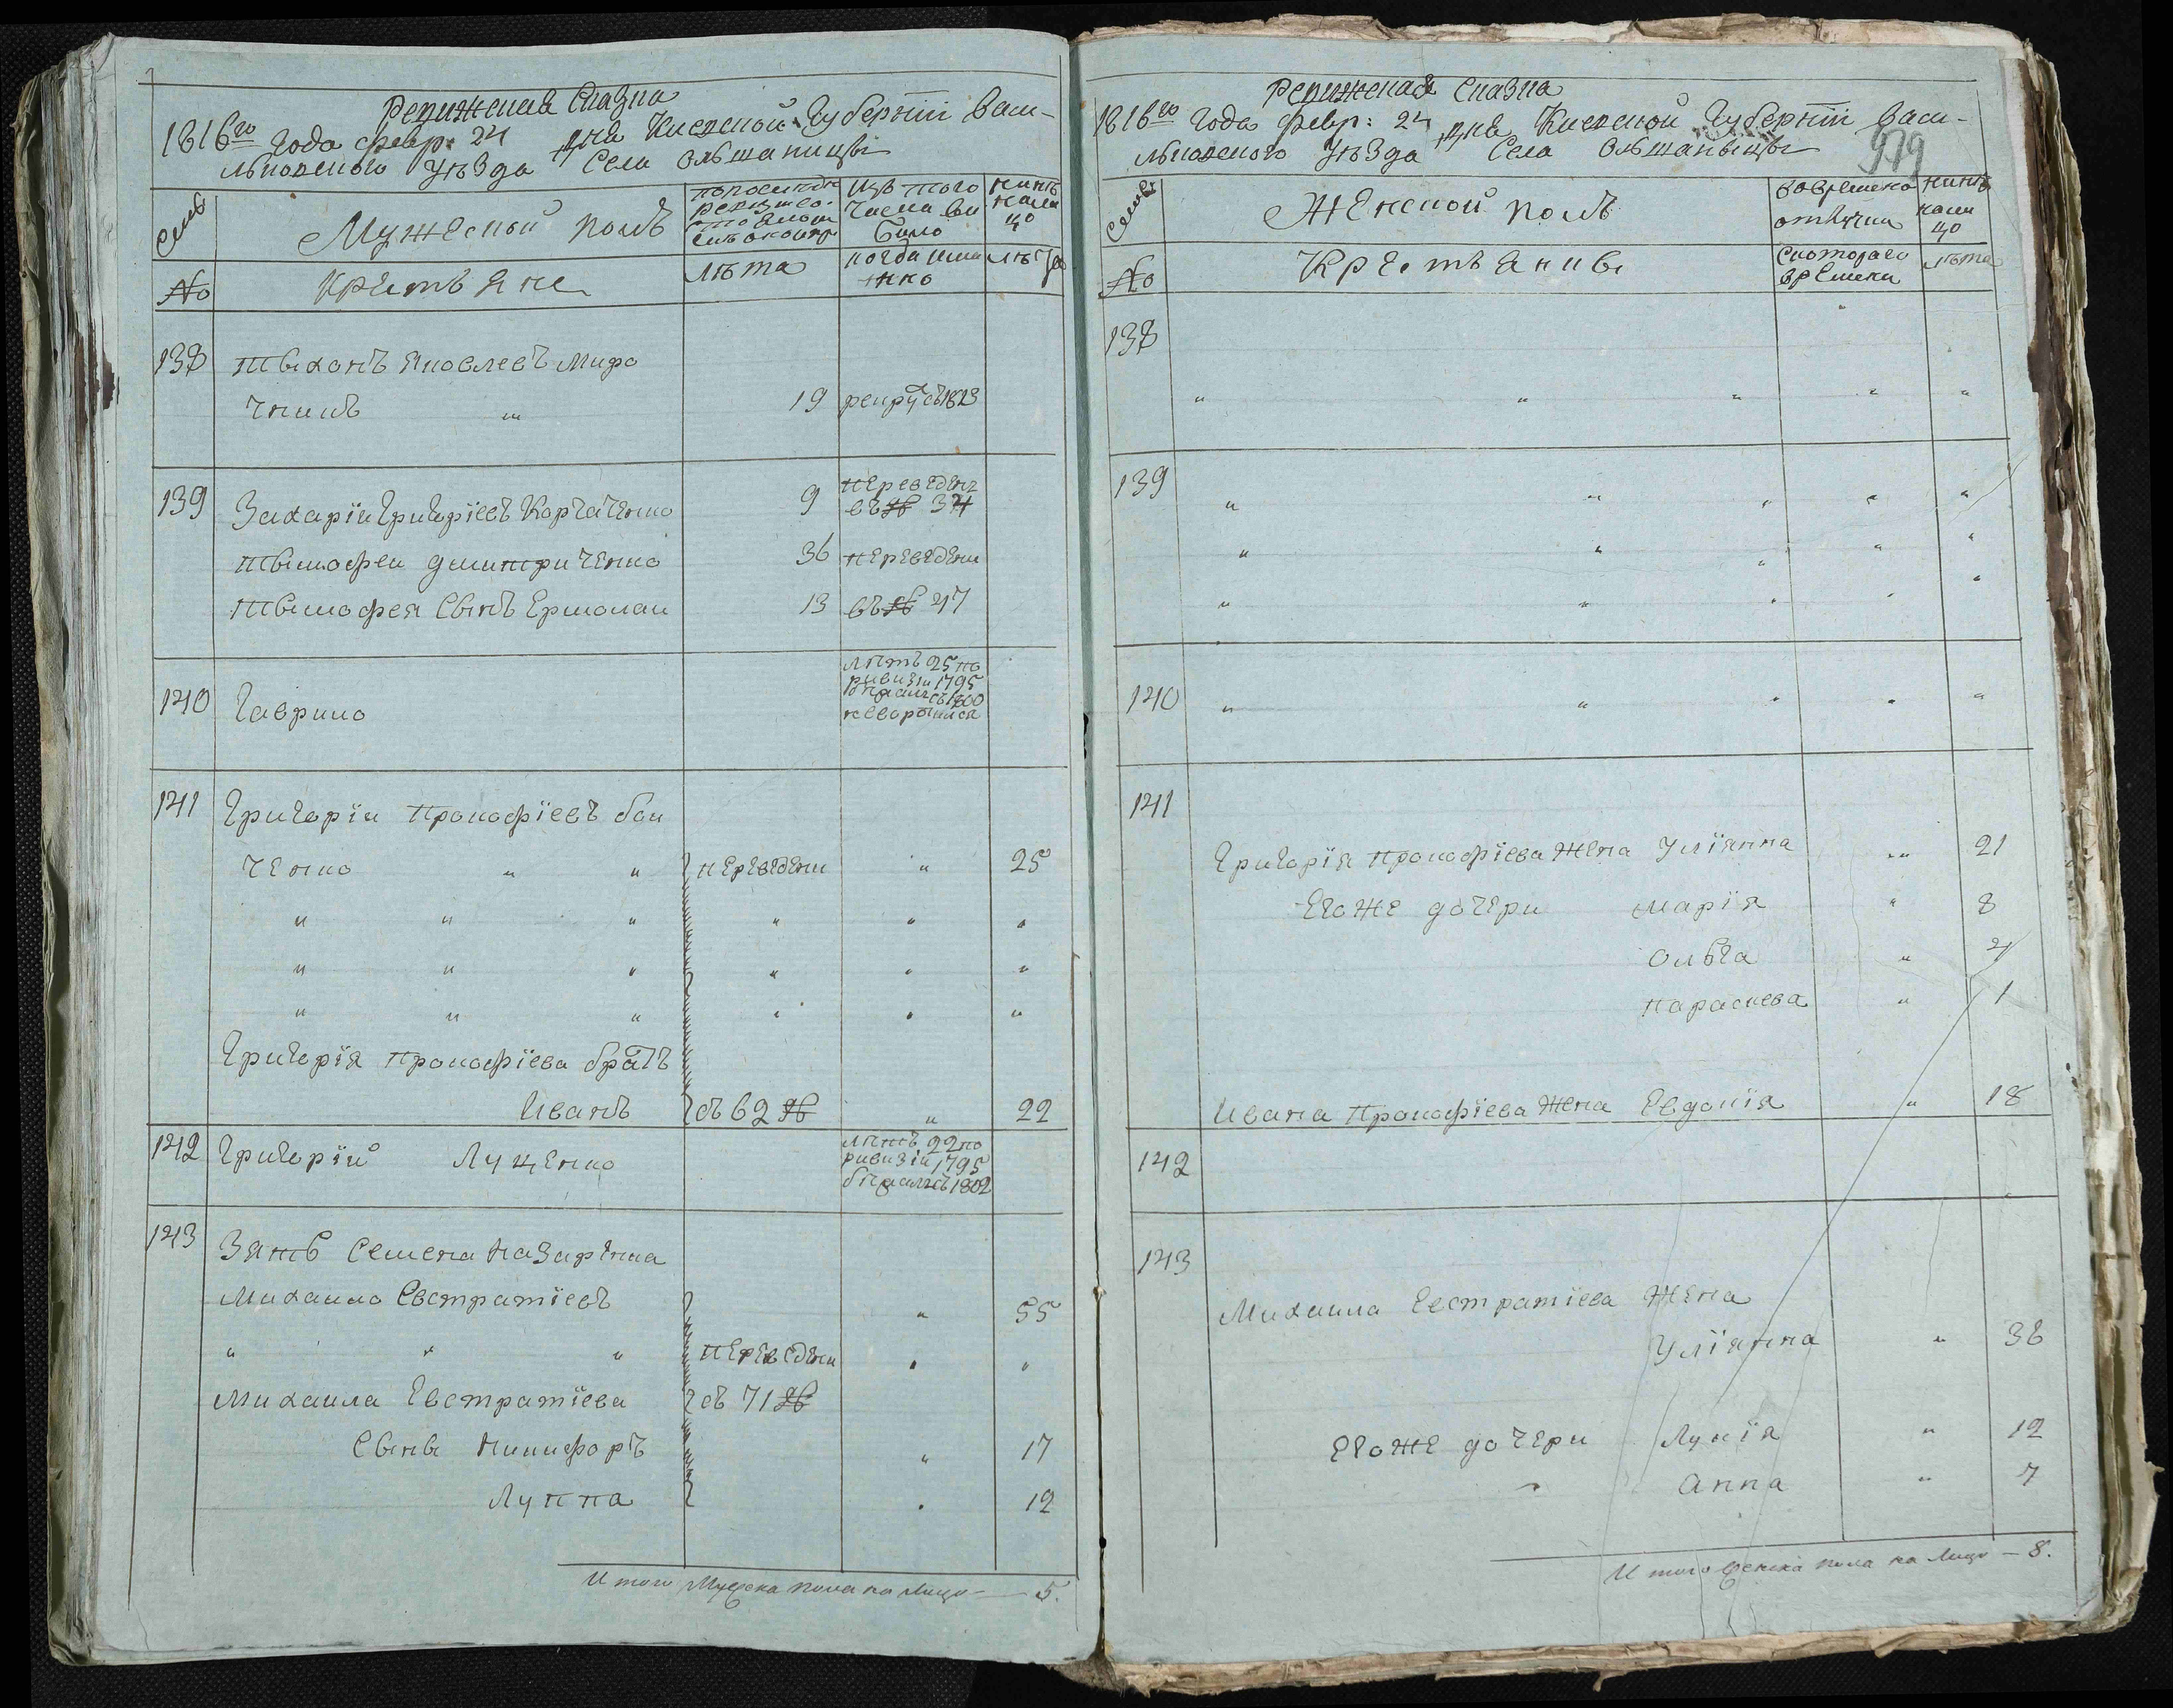 Ревижская Сказка
1816го Года февр: 24 дня Киевской Губернїи Васи-
льковского Уѣзда Села Ольшаницы
Семьи
Мужеской полъ
Изъ того
числа вы
было
нинѣ
на ли
цо
№
Крестьяне
лѣта
когда имя
нно
лѣта
138 Тыхонъ Яковлевъ Миро
чникъ " 19 рекрутъ 1813
139 Захарїи Григорїевъ Корчаченко 9 переведен
въ № 34
Тымофеи Дмитриченко 36 переведени
Тымофея Сынъ Ермолаи 13 въ № 47
140 Гаврило
лѣтъ 25 по
ривизїи 1795
бѣжалъ съ 1800
141 Григорїи Прокофїевъ бои
ченко " " переведени " 25
" " " " " "
" " " " " "
" " " " " "
Григорїя Прокофїева братъ
Иванъ съ 62 № " 22
142 Григорїй Луценко
лѣтъ 22 по
ривизїи 1795
бѣжалъ съ 1802
143 Зять Семена Назаренка
Михаило Евстратїевъ " 55
" " " переведени " "
Михаила Евстратїева съ 71 №
Сыны Никифоръ " 17
Луппа " 12
Итого Мужска пола на лицо — 5.
Ревижская Сказка
1816го Года февр: 24 дня Киевской Губернїи Васи-
льковского Уѣзда Села Ольшаныцы
979
Семьи
Женской полъ
Во времено
отлучки
нинѣ
на ли
цо
№
Крестьянкы
Скоторого
времени
лѣта
138
" " " " "
139
" " " " "
" " " " "
" " " " "
140 " " " " "
141
Григорїя Прокофїева жена Улїянна " 21
Егоже дочери Марїя " 8
Ольга " 4
Параскева " 1
Ивана Прокофїева жена Евдокїя " 18
142
143
Михаила Евстратїева Жена
Улїянна " 36
Егоже дочери Лукїя " 12
" Анна " 7
Итого Женска пола на лицо — 8.